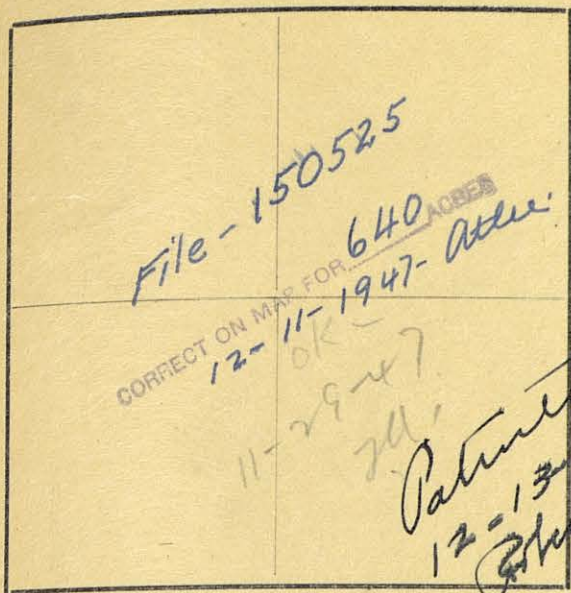 File - 150525
CORRECT ON MAP FOR 640 ACRES
12-11-1947-
OK-
11-29-47.
12-13